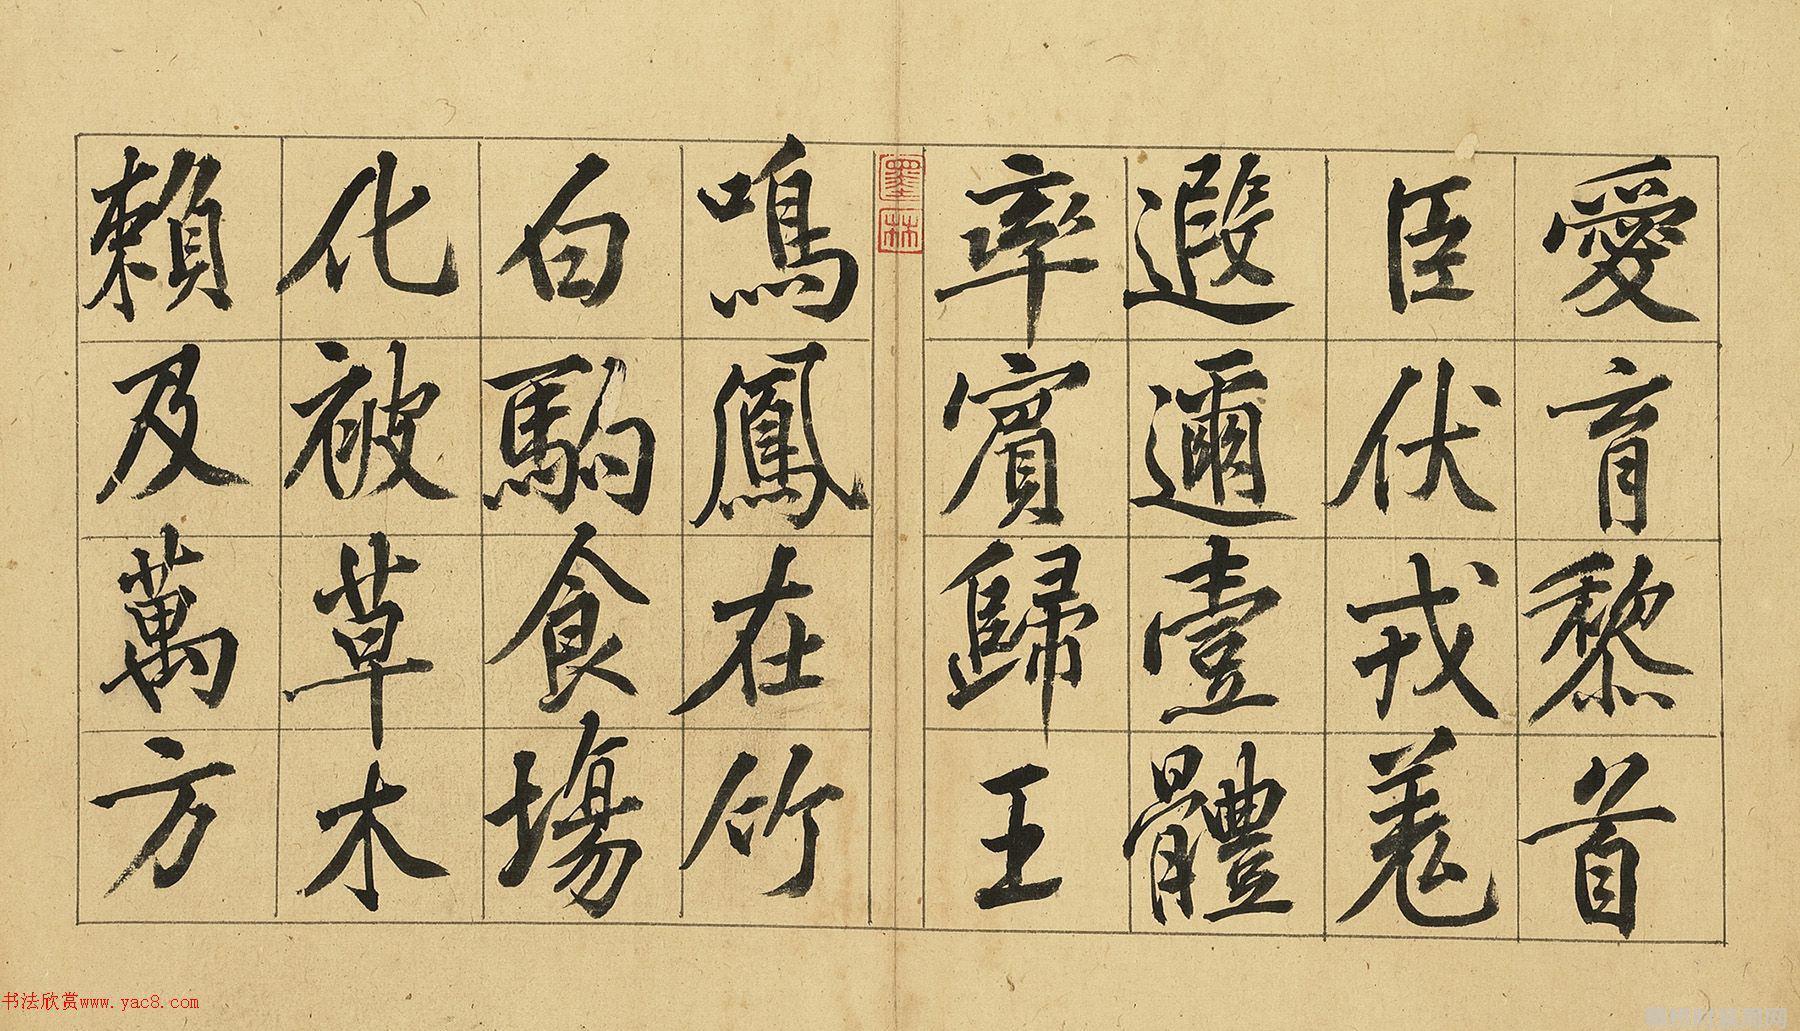 愛育黎首
臣伏戎羌
遐邇壹體
率賓歸王
墨林
鳴鳳在竹
白駒食場
化被草木
賴及萬方
书法欣赏www.yac8.com